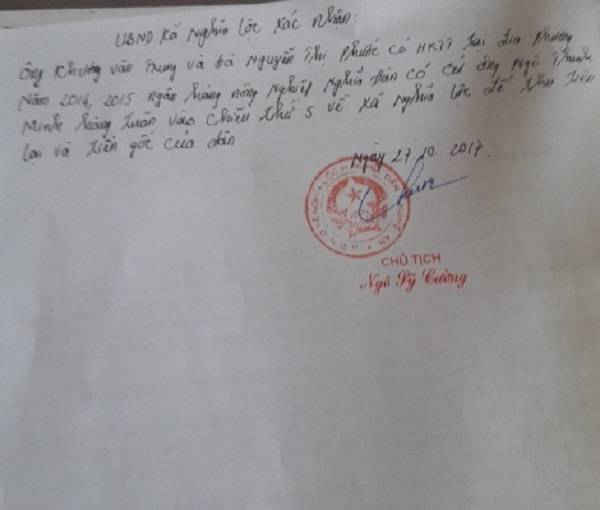 UBND Xã Nghĩa Lộc Xác Nhận:
Ông Khương Văn Trung và bà Nguyễn Thị Phước có HKTT tại địa phương
Năm 2014, 2015 ngân hàng nông nghiệp Nghĩa Đàn có cử ông Ngô Thanh
Minh hàng tuần vào chiều thứ 5 về xã Nghĩa Lộc để thu tiền
lai và tiền gốc của dân
Ngày 27.10.2017
CHỦ TỊCH
Ngô Sỹ Cường